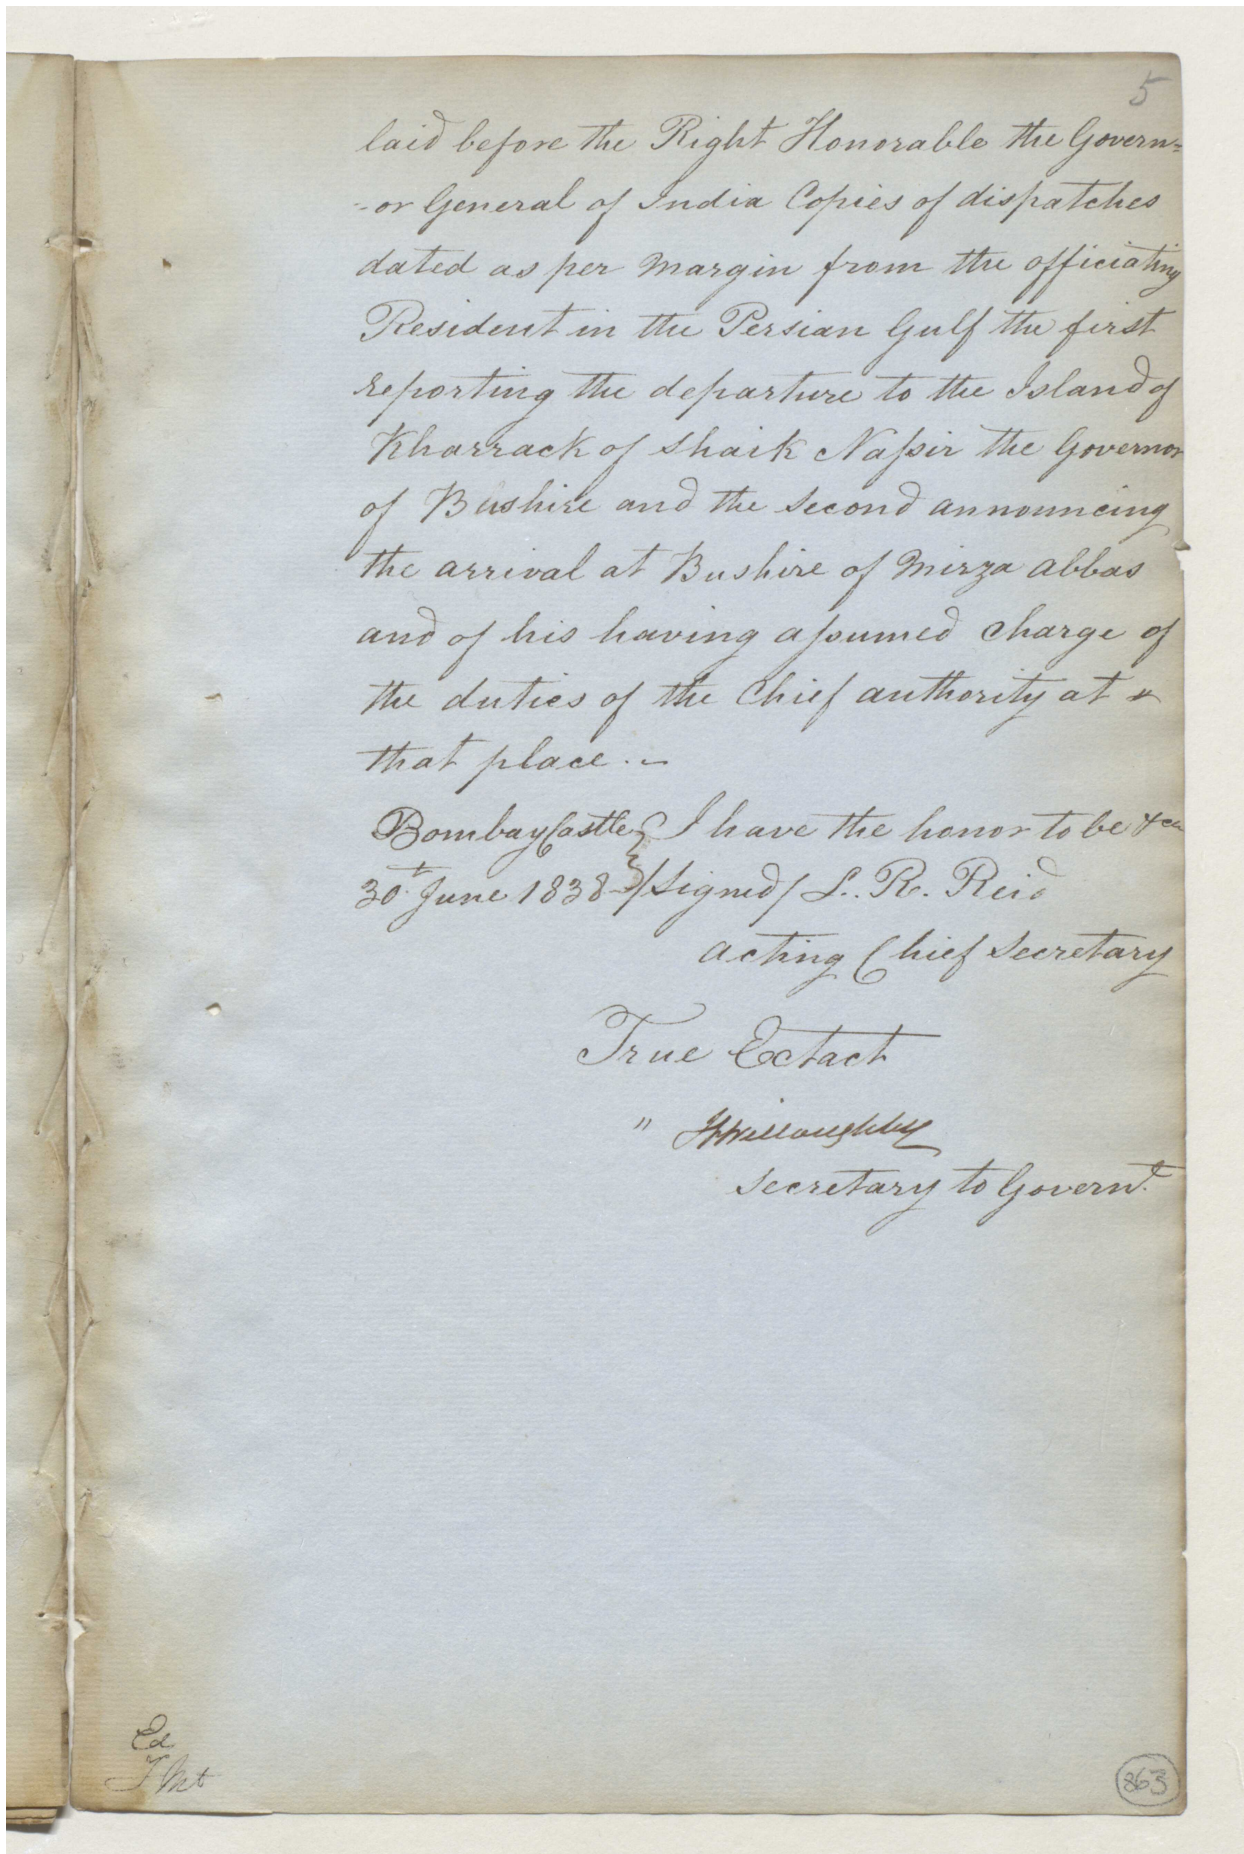 5
laid before the Right Honorable the Govern=
-or General of India Copies of dispatches
dated as per margin from the officiating
Resident in the Persian Gulf the first
reporting the departure to the Island of
Kharrack of Shaik Nassir the Governor
of Bushire and the second announcing
the arrival at Bushire of Mirza Abbas
and of his having assumed charge of
the duties of the Chief authority at
that place.-
Bombay Castle } I have the honor to be &ca
30t June 1838 } /Signed/ L. R. Reid
acting Chief Secretary
True Extact
" Willoughby
Secretary to Governt.
Ed
863